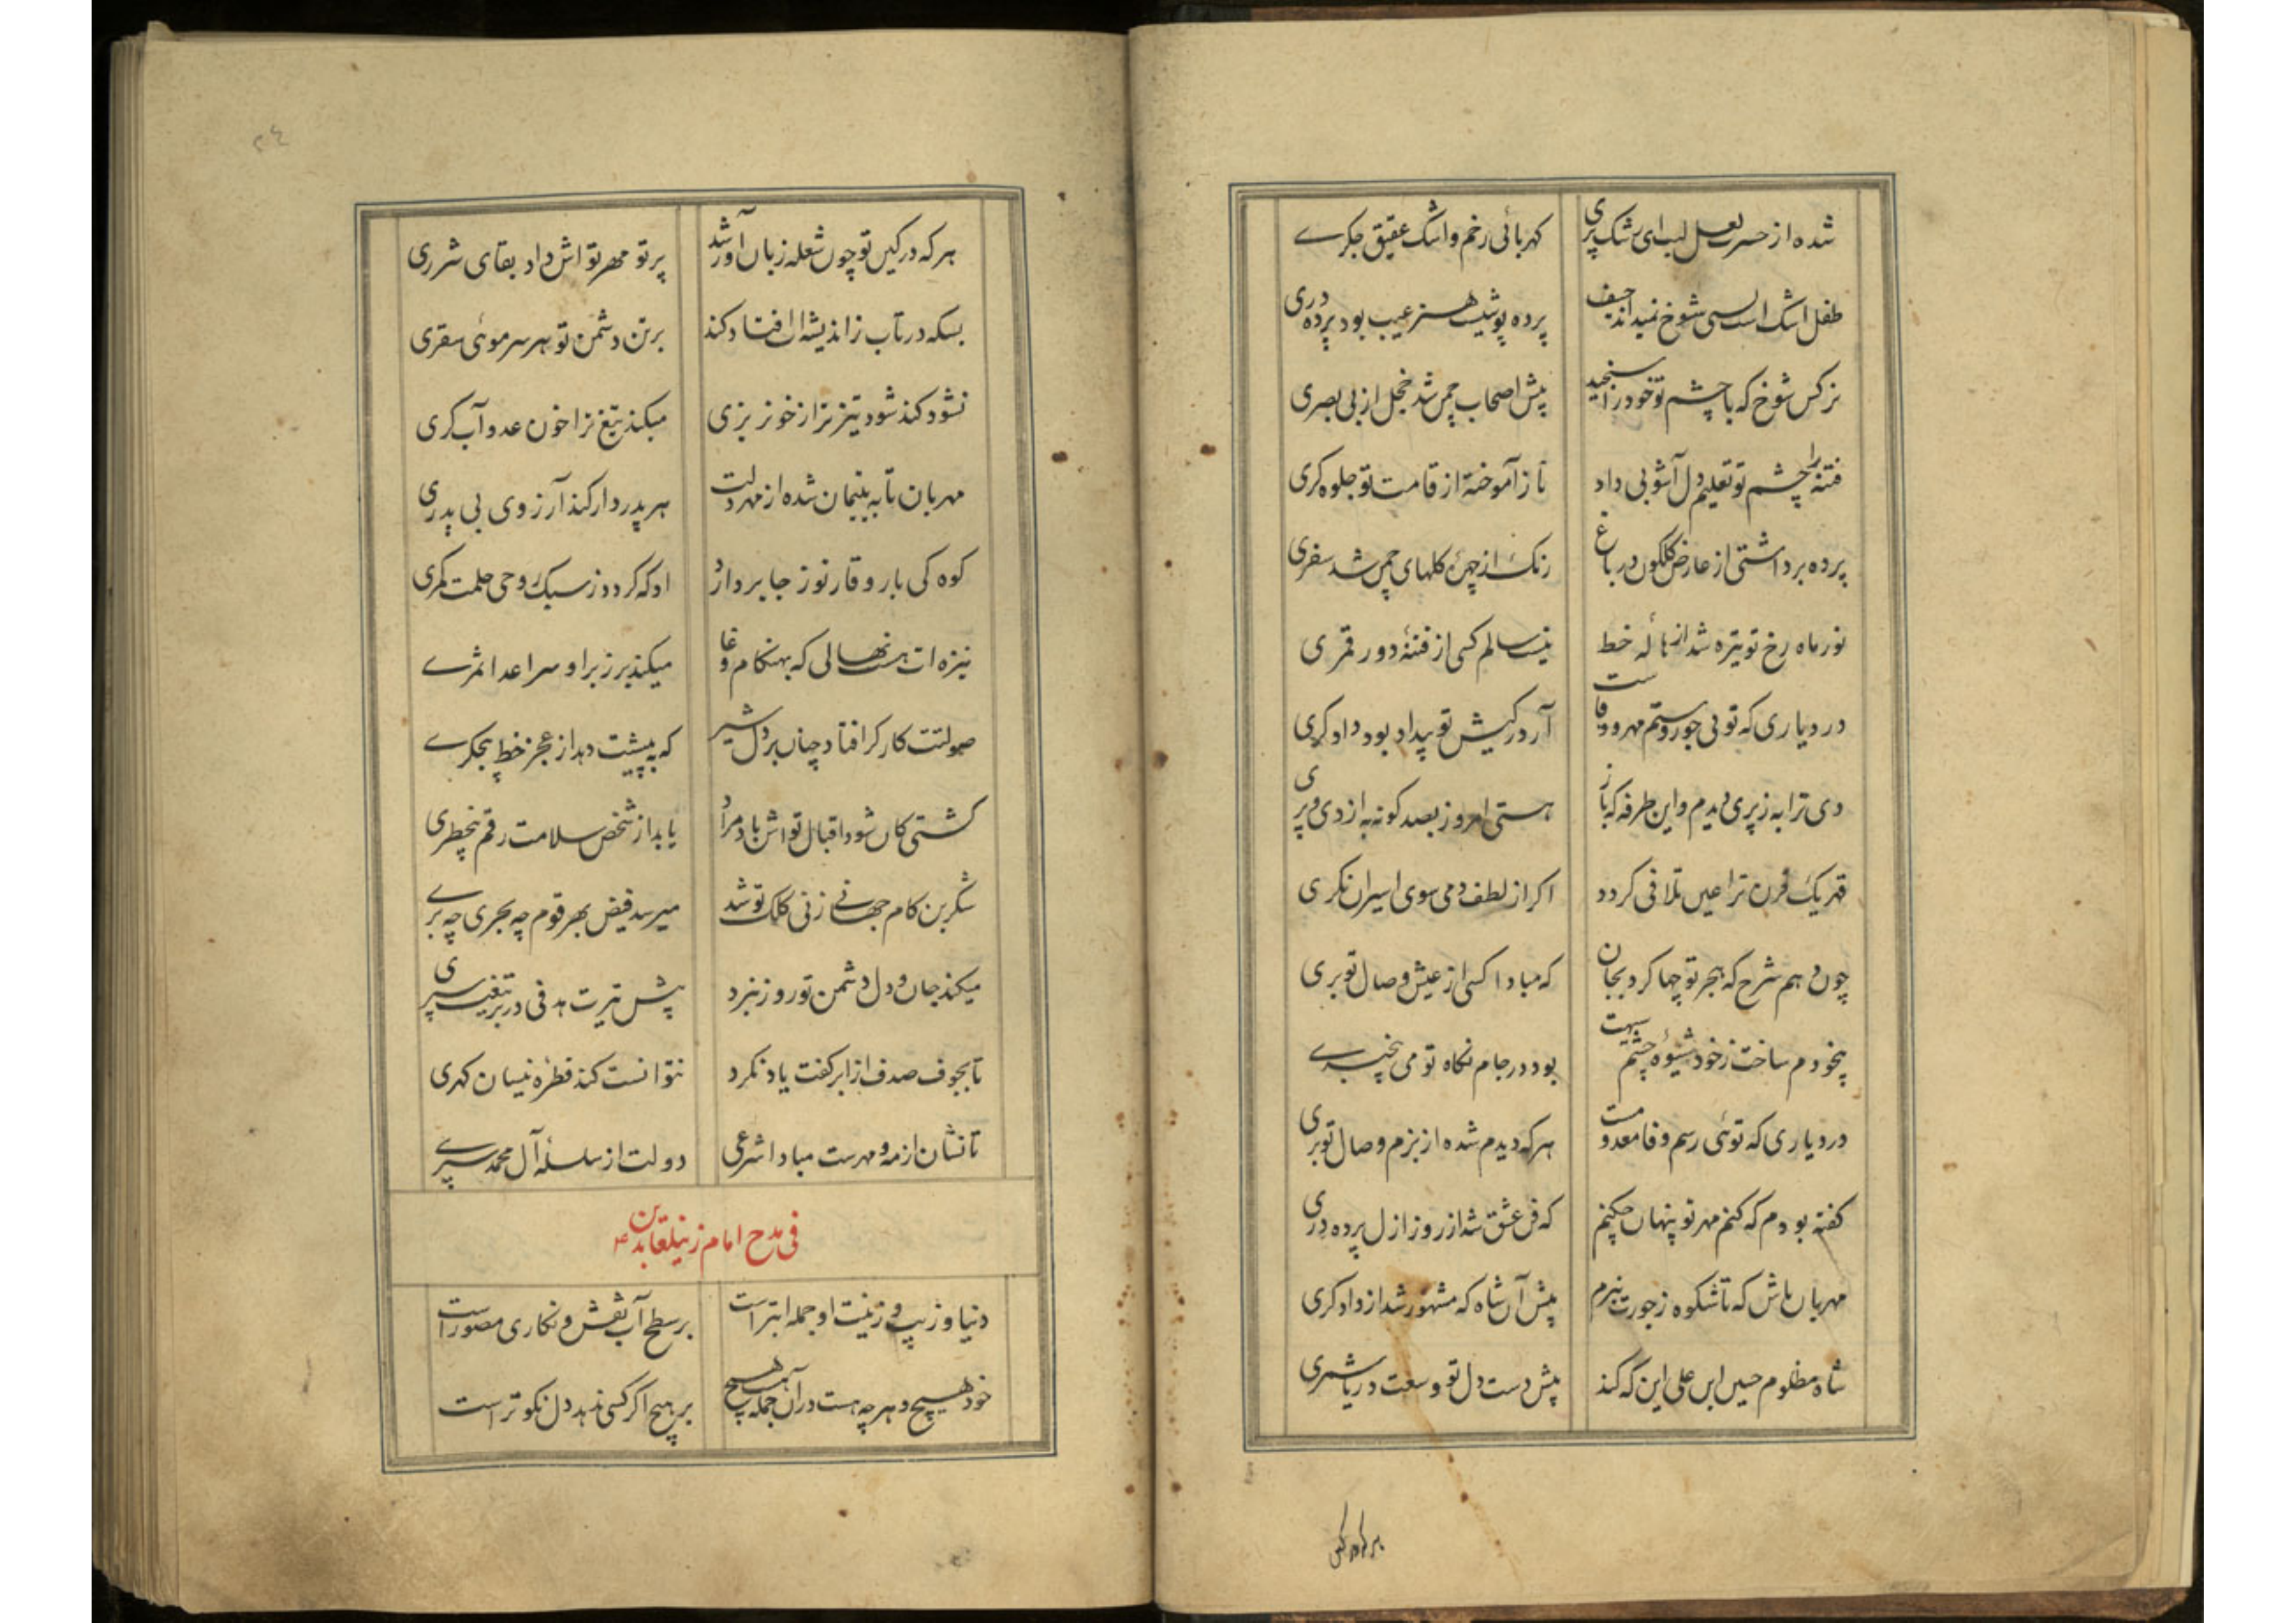 شده از حسرت لعل لبت ای رشک پری کهربائی رخم و اشک عقیق جکری
طفل اشک است بسی شوخ نمیداند حیف پرده پوشیست هنر عیب بود پرده دری
نرکس شوخ که با چشم تو خود را سنجید پیش اصحاب چمن شد خجل از بی بصری
فتنه را چشم تو تعلیم دل آشوبی داد ناز آموخته از قامت تو جلوه کری
پرده برداشتی از عارض کلکون در باغ رنک از چهرهٔ کلهای چمن شد سفری
نور ماه رخ تو تیره شد از هالهٔ خط نیست سالم کسی از فتنهٔ دور قمری
در دیاری که توئی جور و ستم مهر و وفاست آر در کیش تو بیداد بود دادکری
دی ترا به ز پری دیدم و این طرفه که باز هستی امروز بصد کونه به از دی و پری
قهر یک قرن ترا عین تلافی کردد اکر از لطف دمی سوی اسیران نکری
چون دهم شرح که هجر تو چها کرد بجان که مبادا کسی از عیش وصال تو بری
بیخودم ساخت ز خود شیوهٔ چشم سیهت بود در جام نکاه تو می بیخبری
در دیاری که توئی رسم وفا معدومست هر که دیدم شده از بزم وصال تو بری
کفته بودم که کنم مهر تو پنهان چکنم که فن عشق شد از روز ازل پرده دری
مهربان باش که تا شکوه ز جورت نبرم پیش آن شاه که مشهور شد از دادکری
شاه مظلوم حسین ابن علی این که کند پیش دست دل تو وسعت دریا شمری
هر که در کین
هر که در کین تو چون شعله زبان آور شد پرتو مهر تواش داد بقای شرری
بسکه در تاب ز اندیشه ات افتاد کند بر تن دشمن تو هر سر موئی سقری
نشود کند شود تیزتر از خونریزی میکند تیغ ترا خون عدو آب کری
مهربان تا به یتیمان شده از مهر دلت هر پدردار کند آرزوی بی پدری
کوه کی بار وقار تو ز جا بردارد او که کردد ز سبک روحی حلمت کمری
نیزه ات هست نهالی که بهنکام وغا میکند بر زبر او سر اعدا ثمری
صولتت کارکر افتاد چنان بر دل شیر که به پیشت دهد از عجز خط بیجکری
کشتی کان شود اقبال تواش باد مراد یابد از شخص سلامت رقم بیخطری
شکرین کام جهانی ز نی کلک تو شد میرسد فیض بهر قوم چه بحری چه بری
میکند جان و دل دشمن تو روز نبرد پیش تیرت هدفی در بر تیغت سپری
تا بجوف صدف از ابر کفت یاد نکرد نتوانست کند قطرهٔ نیسان کهری
تا نشان از مه و مهرست مبادا شرعی دولت از سلسلهٔ آل محمد سپری
فی مدح امام زینلعابدین ع
دنیا و زیب و زینت او جمله ابتر است بر سطح آب نقش و نکاری مصور است
خود هیچ و هر چه هست در آن جمله هیچ هیچ بر هیچ اکر کسی ندهد دل نکوتر است